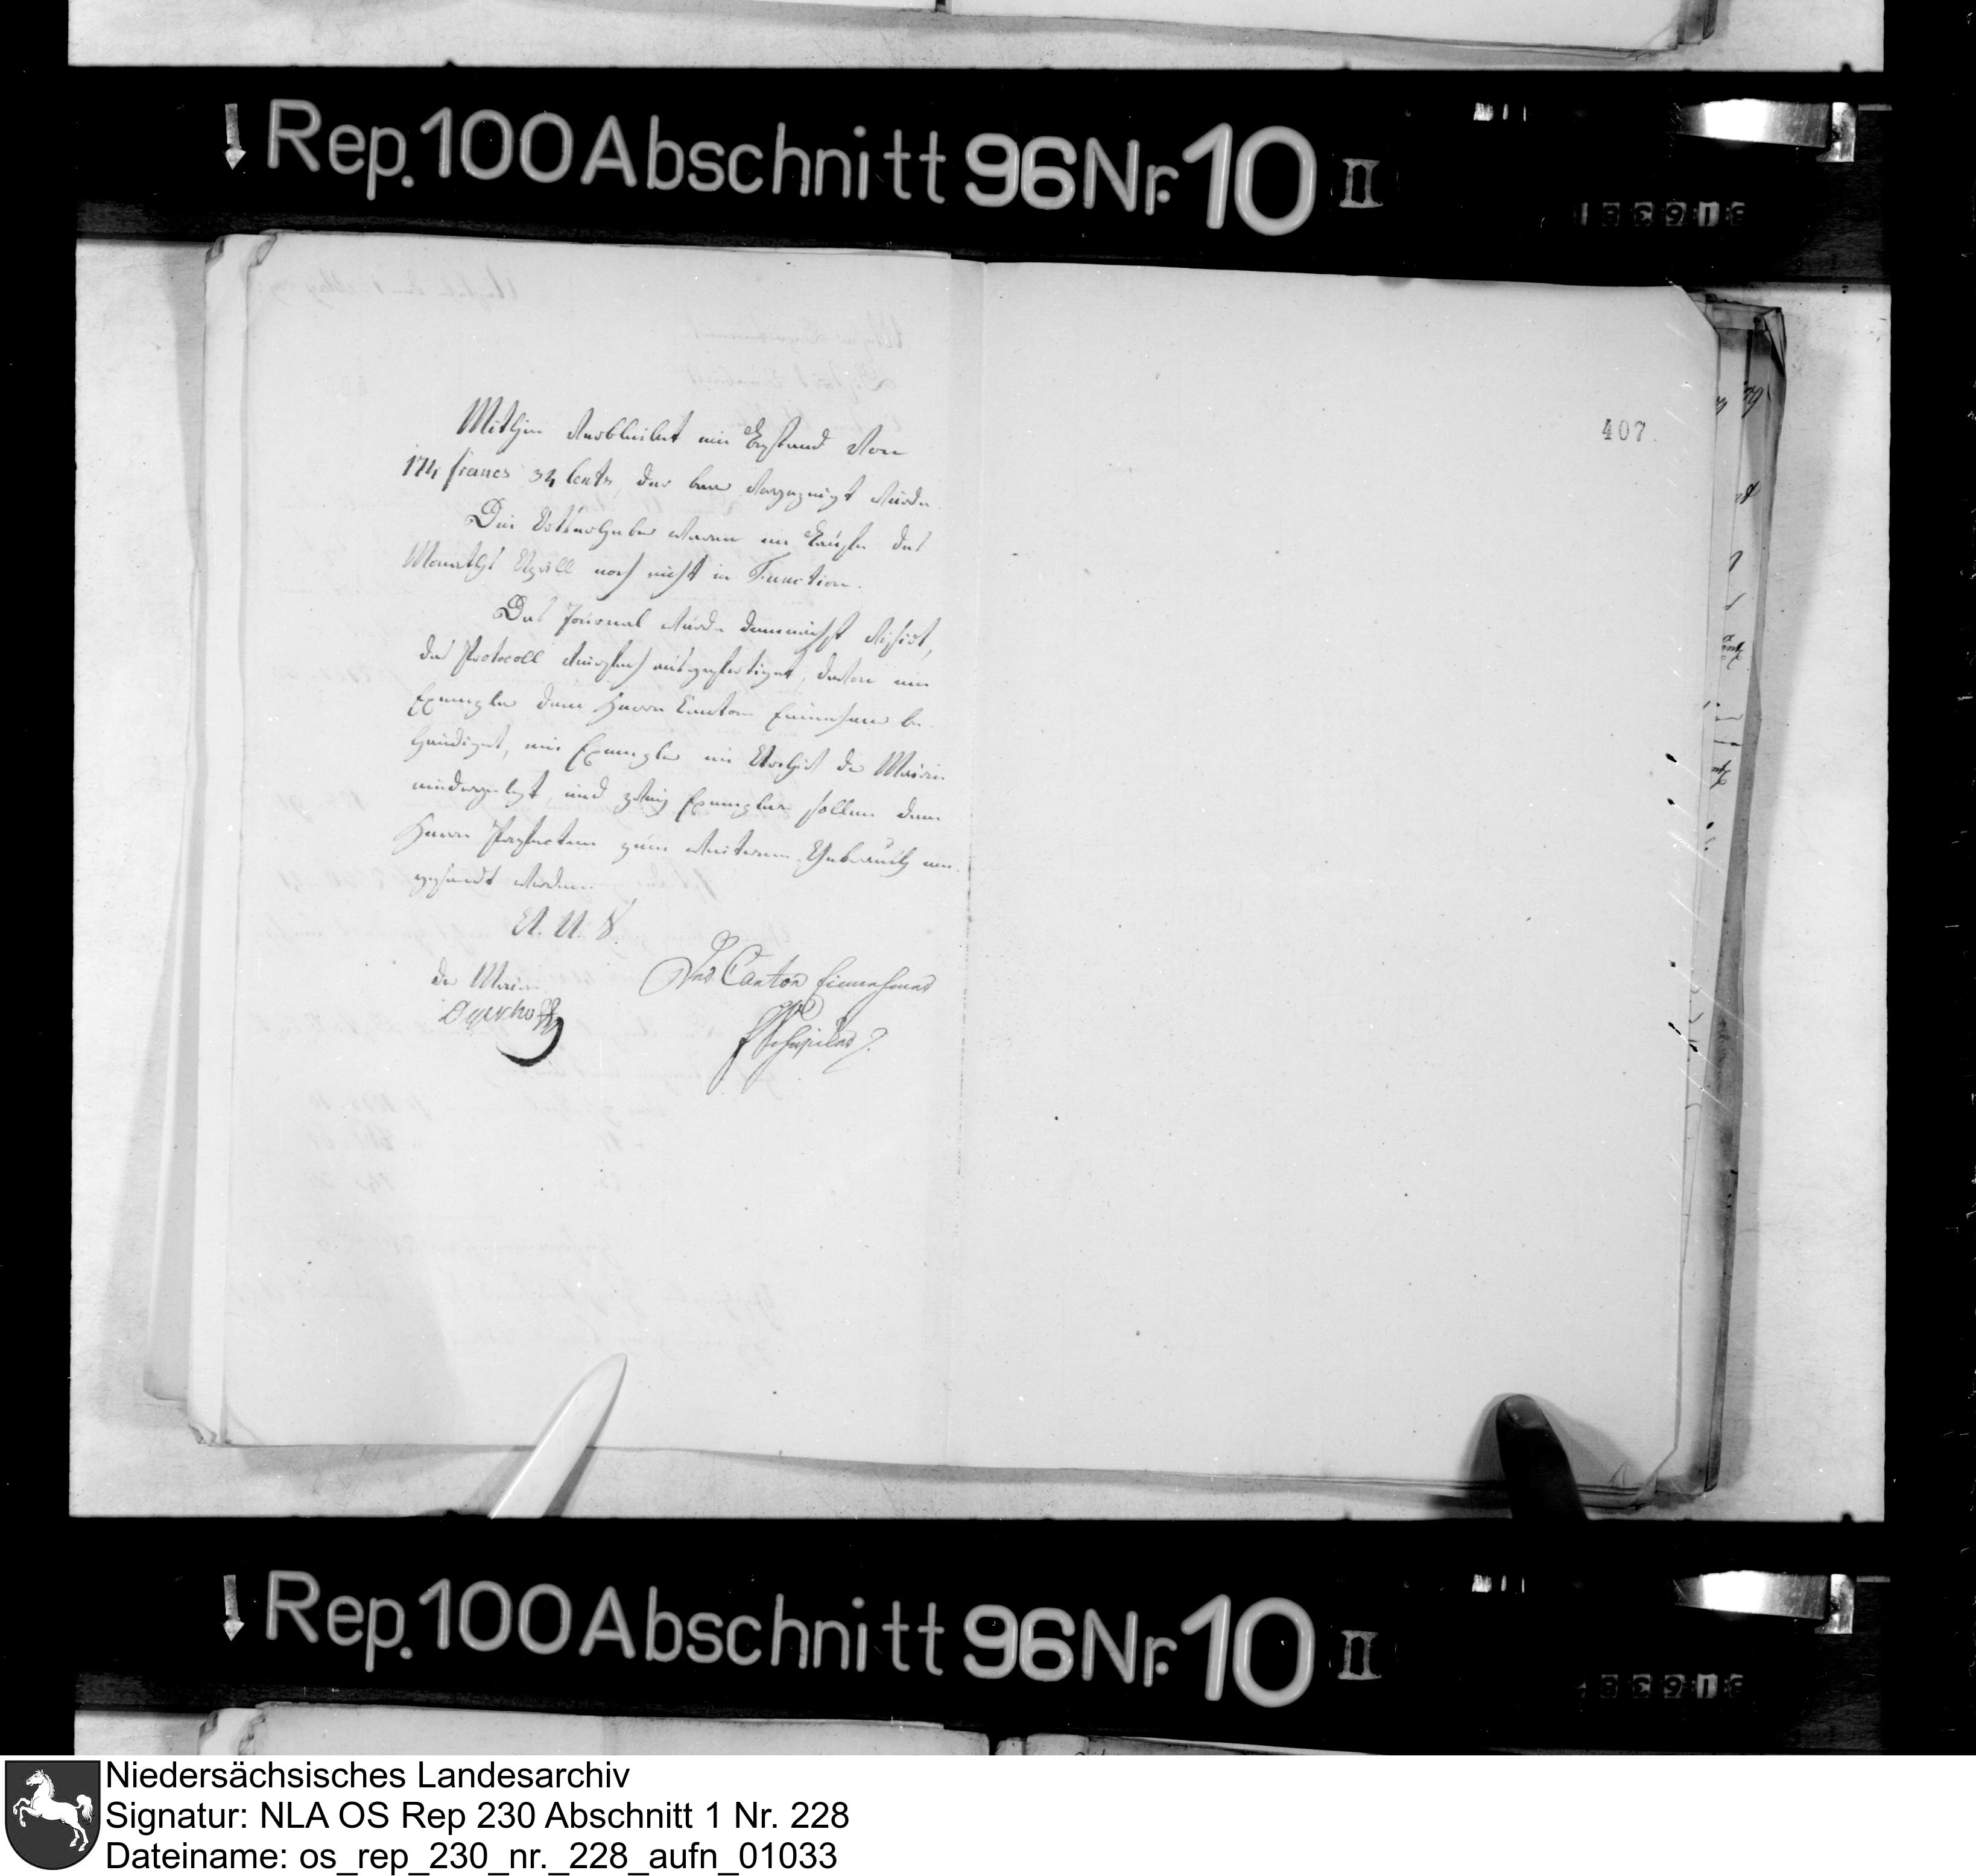 Rep. 100 Abschnitt 96 Nr. 10 II
407
Mithin verbleibet ein Bestand von
174 francs 34 Cents, der baar vorgezeigt wurde.
Die Octroiheber waren im Laufe des
Monaths April noch nicht in Function.
Das Journal wurde demnächst visirt,
das Protocoll vierfach ausgefertiget, davon ein
Exemplar dem Herrn Canton Einnehmer be-
händiget, ein Exemplar im Archiv der Mairie
niedergelegt, und zwey Exemplare sollen dem
Herrn Praefecten zum weiteren Gebrauch ein-
gesandt werden.
A. U. S.
der Maire
Der Canton Einnehmer
Rep. 100 Abschnitt 96 Nr. 10 II
Niedersächsisches Landesarchiv
Signatur: NLA OS Rep 230 Abschnitt 1 Nr. 228
Dateiname: os_rep_230_nr._228_aufn_01033